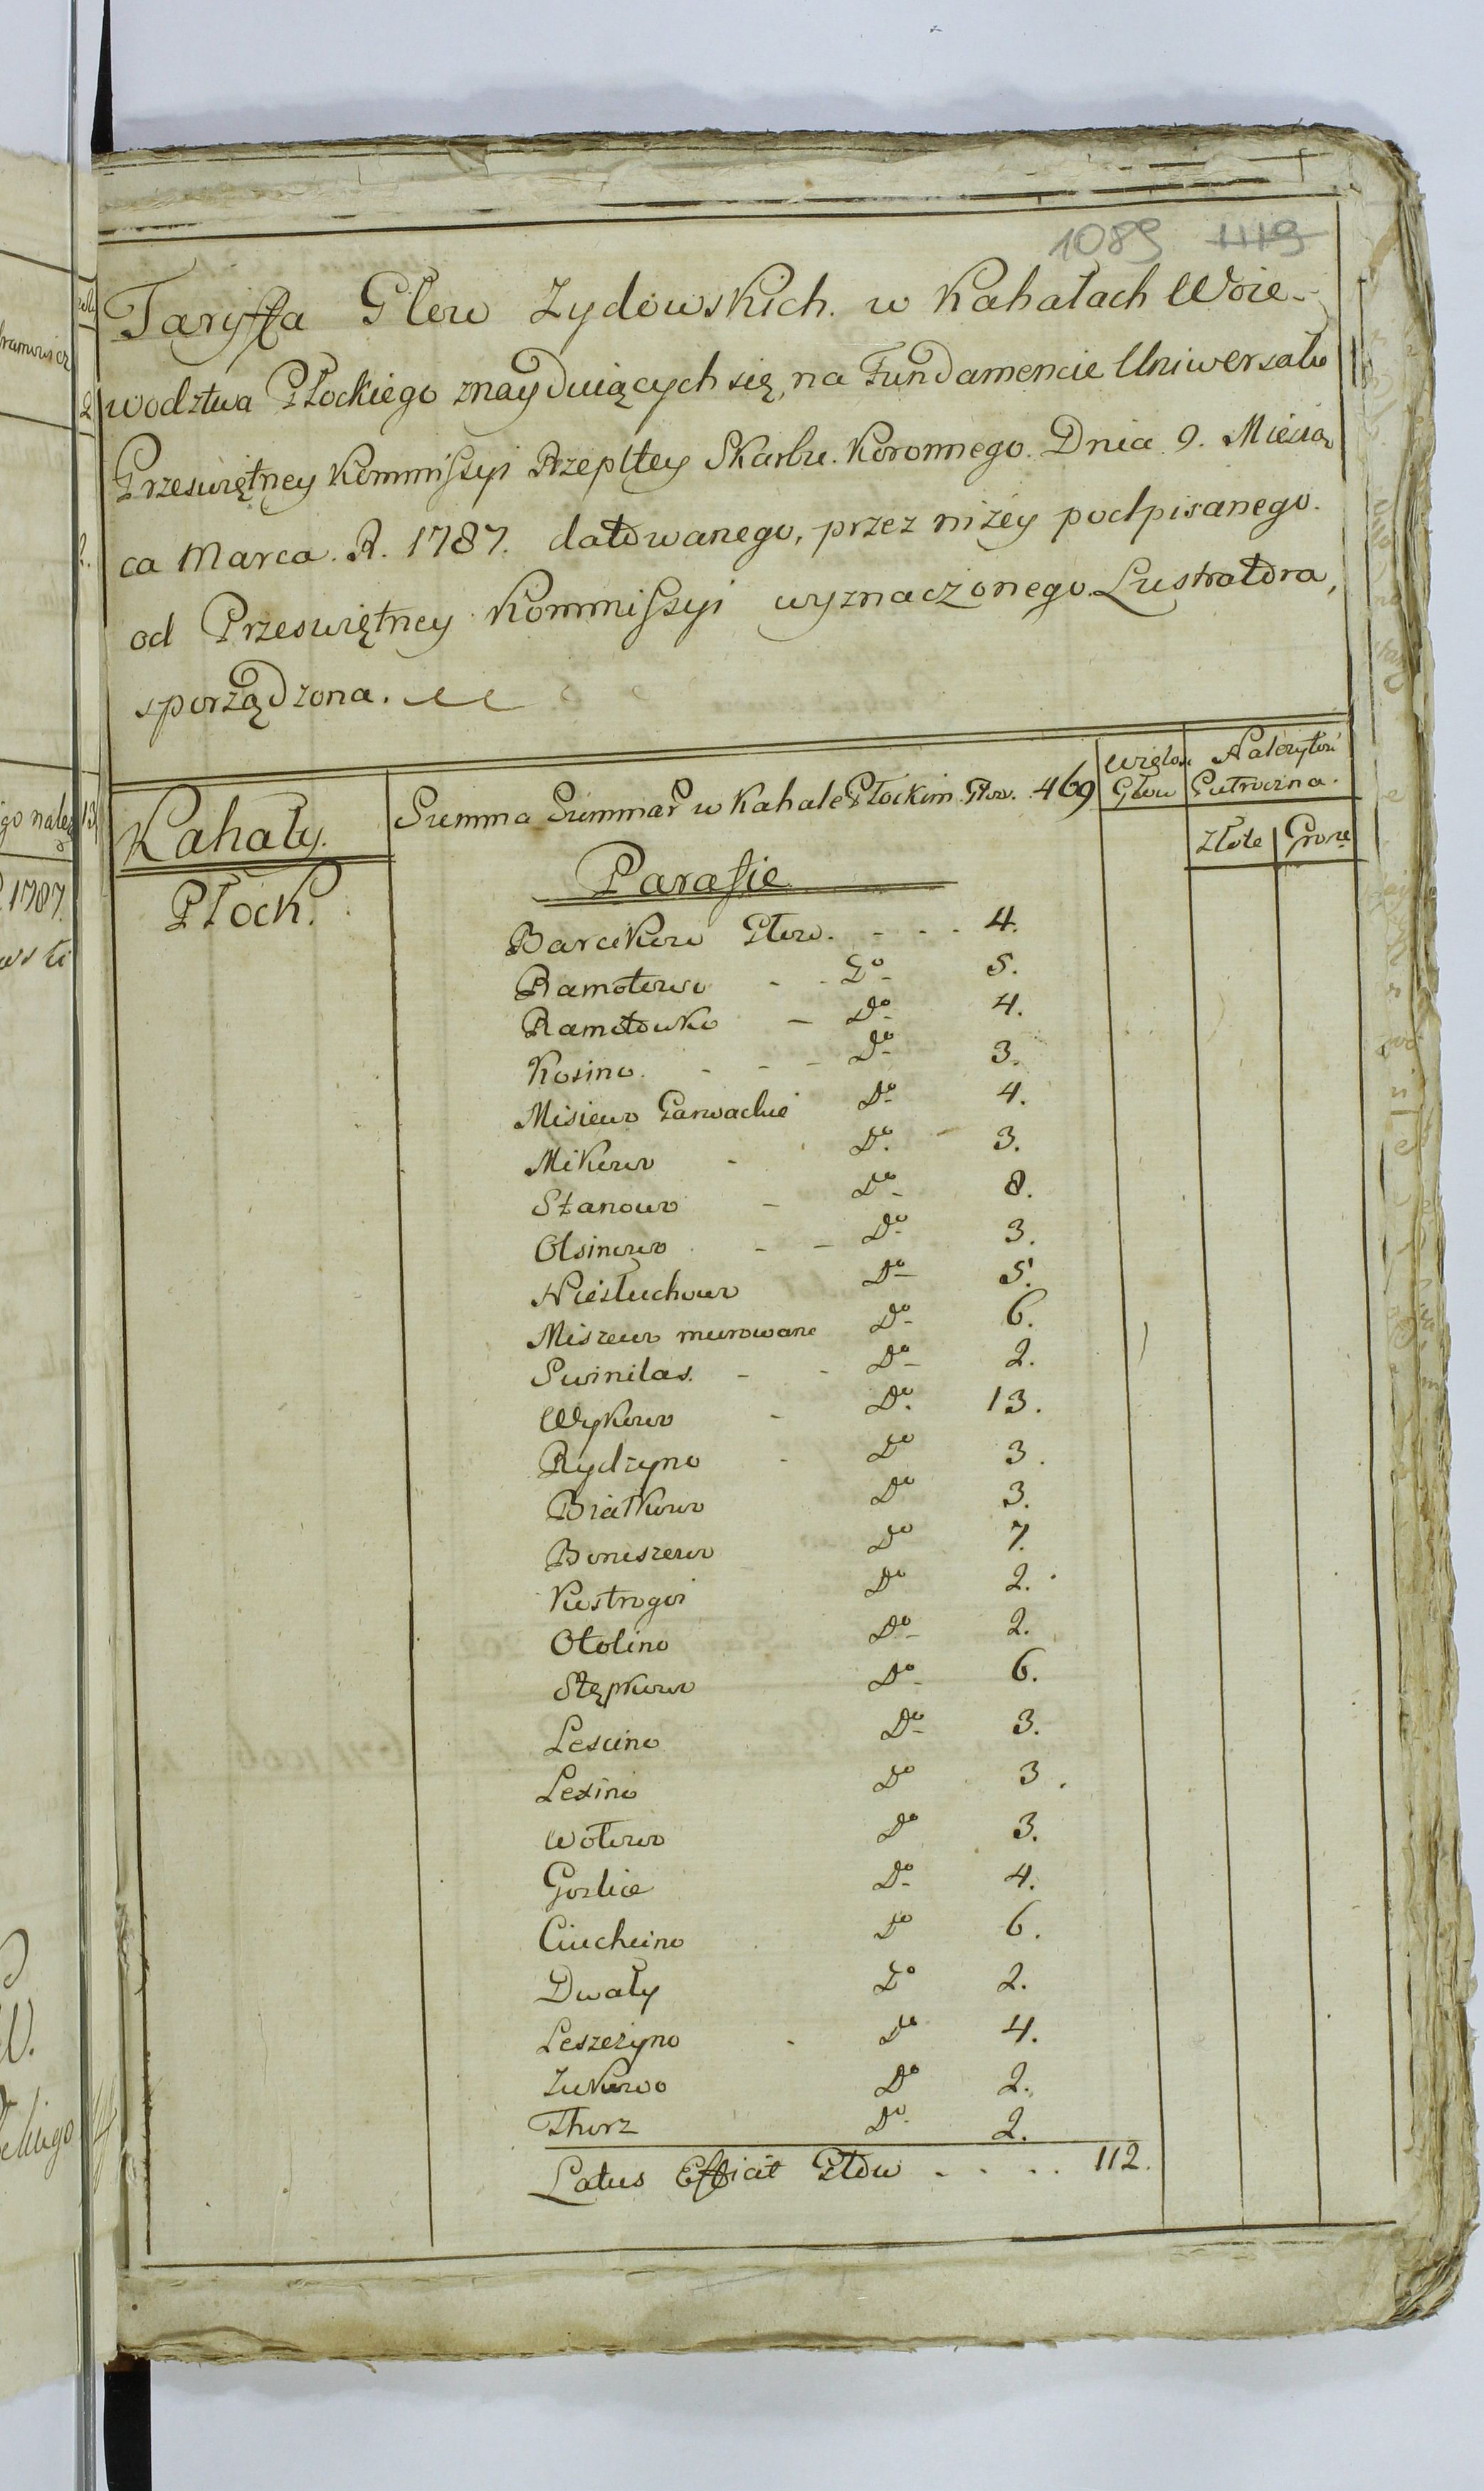 1089 1119
Taryffa Glow Zydowskich. w Kahałach Woie-
wodztwa Płockiego znayduiących się, na Fundamencie Uniwersału
Przeswiętney Kommissyi Rzepltey Skarbu. Koronnego. Dnia 9. Miesią
ca Marca. R. 1787. datowanego, przez niżey podpisanego.
od Przeswiętney Kommissyi wyznaczonego Lustratora,
sporządzona.
Kahały. Summa Summar w Kahale Płockim Głow. 469 Głow Należytość
Złote Grosze
Płock. Parafie
Barcikowo Głow. - - - - 4.
Ramotowo - - Do- 5.
Ramotowko - Do- 4.
Kosino. - - - Do- 3.
Misiewo Garwackie Do- 4.
Mikowo - Do. 3.
Stanowo - Do- 8.
Olsinowo - - Do- 3.
Niesłuchowo Do- 5.
Miszewo murowane Do- 6.
Swinilas. - - Do- 2.
Wykowo - Do. 13.
Rydzyno - Do 3.
Białkowo Do 3.
Boniszewo Do 7.
Kostrogoi Do 2.
Otolino Do- 2.
Stępkowo Do- 6.
Lescino Do- 3.
Lexino Do 3.
Wołowo Do 3.
Gozlice Do- 4.
Ciucheino Do 6.
Dwały Do 2.
Leszczyno - Do 4.
Zukowo Do 2.
Thorz Do. 2.
Latus Efficit Głow - . . . 112.